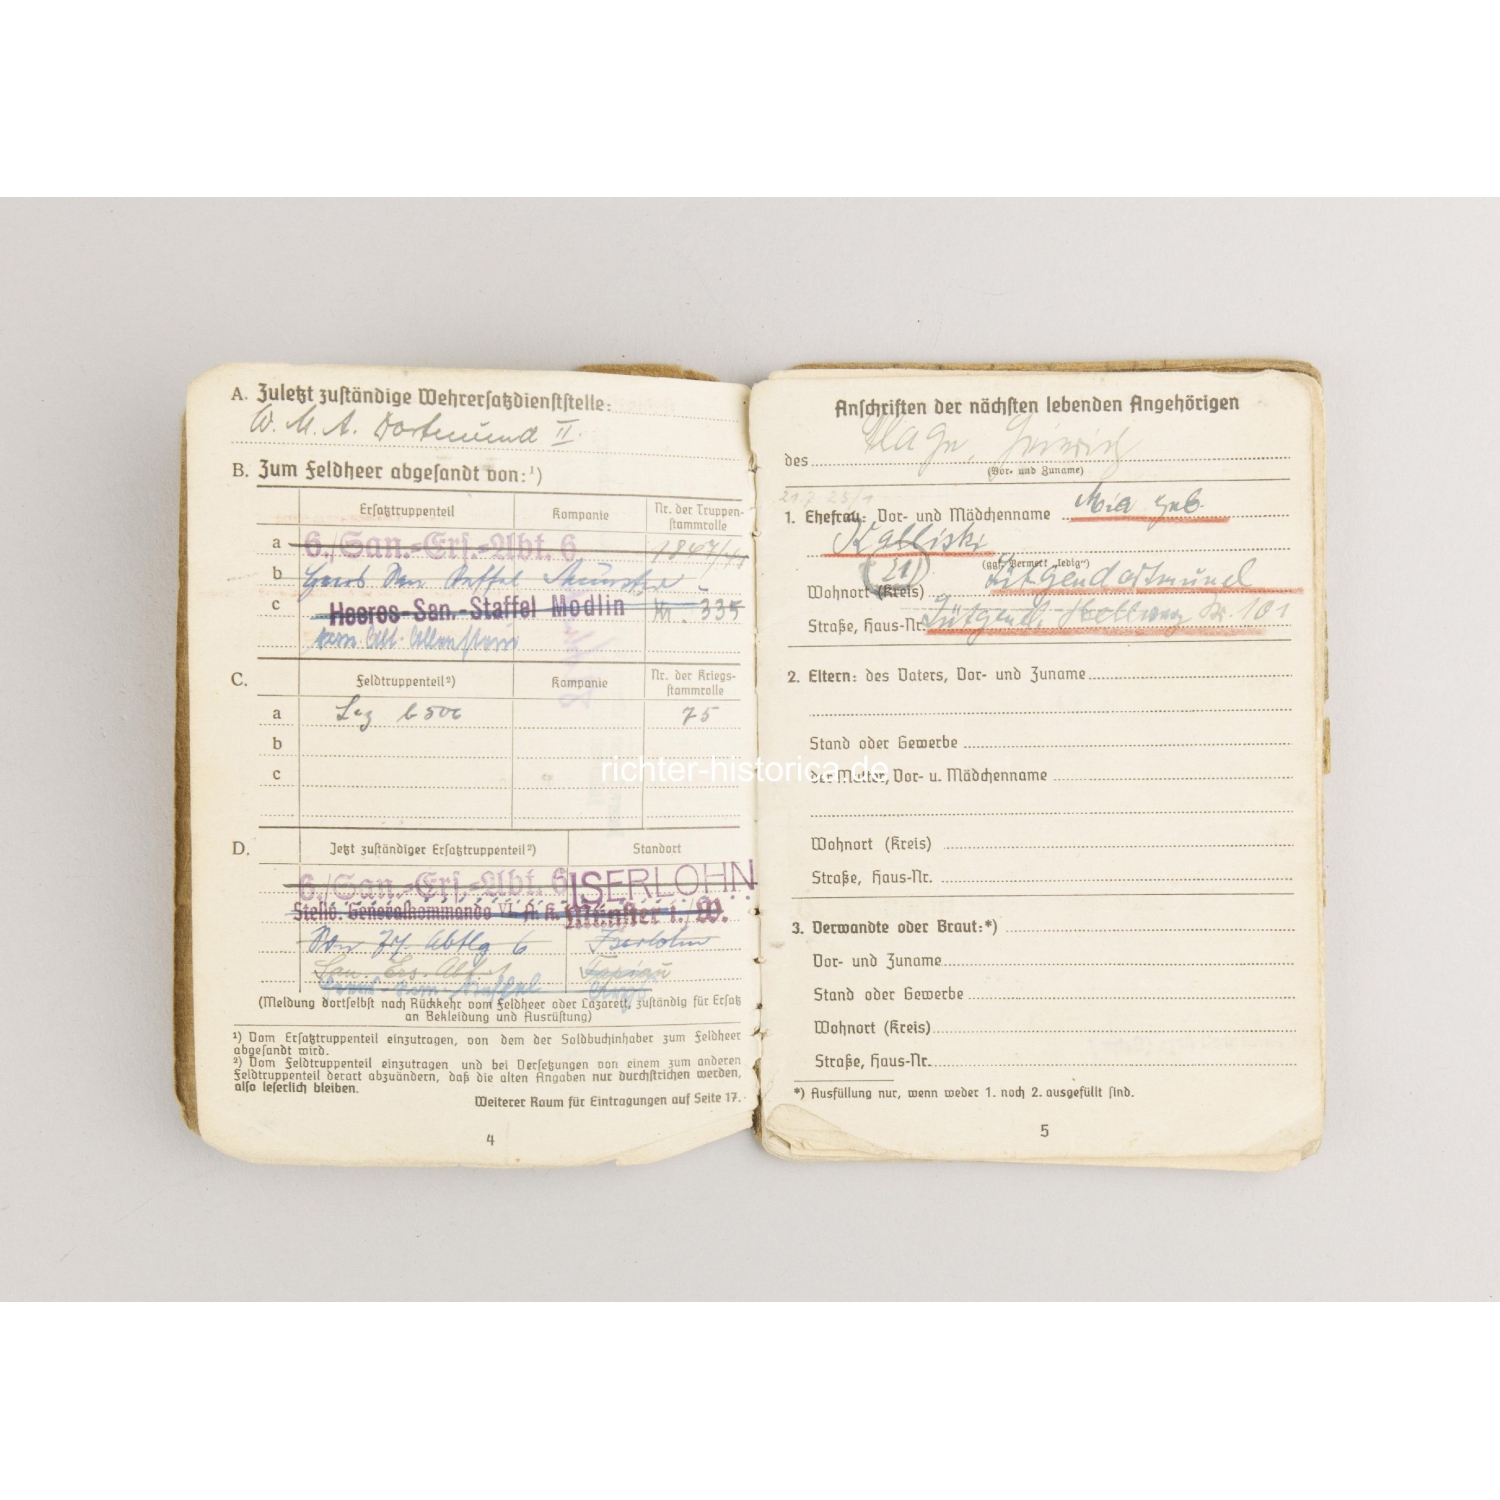 A. Zuletzt zuständige Wehrersatzdienststelle:
W. M. A. Dortmund II.
B. Zum Feldheer abgesandt von:¹)
Ersatztruppenteil Kompanie Nr. der Truppen-
stammrolle
a 6./San.-Ers.-Abt. 6
b
c Heeres-San.-Staffel Modlin Nr. 335
C. Feldtruppenteil²) Kompanie Nr. der Kriegs-
stammrolle
a 75
b
c
D. Jetzt zuständiger Ersatztruppenteil²) Standort
6./San.-Ers.-Abt. 6 ISERLOHN
Stellv. Generalkommando VI. A. K. Münster i. W.
Abtlg 6 Iserlohn
San. Ers. Abt. 1 Tapiau
(Meldung dortselbst nach Rückkehr vom Feldheer oder Lazarett, zuständig für Ersatz
an Bekleidung und Ausrüstung)
¹) Vom Ersatztruppenteil einzutragen, von dem der Soldbuchinhaber zum Feldheer
abgesandt wird.
²) Vom Feldtruppenteil einzutragen und bei Versetzungen von einem zum anderen
Feldtruppenteil derart abzuändern, daß die alten Angaben nur durchstrichen werden,
also leserlich bleiben.
Weiterer Raum für Eintragungen auf Seite 17.
4
Anschriften der nächsten lebenden Angehörigen
des Heinrich
(Vor- und Zuname)
1. Ehefrau: Vor- und Mädchenname Mia geb.
Kalliski
(ggf. Vermerk „ledig“)
(21)
Wohnort (Kreis) Lütgendortmund
Straße, Haus-Nr. Lütgend. Hellweg Nr. 101
2. Eltern: des Vaters, Vor- und Zuname
Stand oder Gewerbe
der Mutter, Vor- u. Mädchenname
Wohnort (Kreis)
Straße, Haus-Nr.
3. Verwandte oder Braut:*)
Vor- und Zuname
Stand oder Gewerbe
Wohnort (Kreis)
Straße, Haus-Nr.
*) Ausfüllung nur, wenn weder 1. noch 2. ausgefüllt sind.
5
richter-historica.de